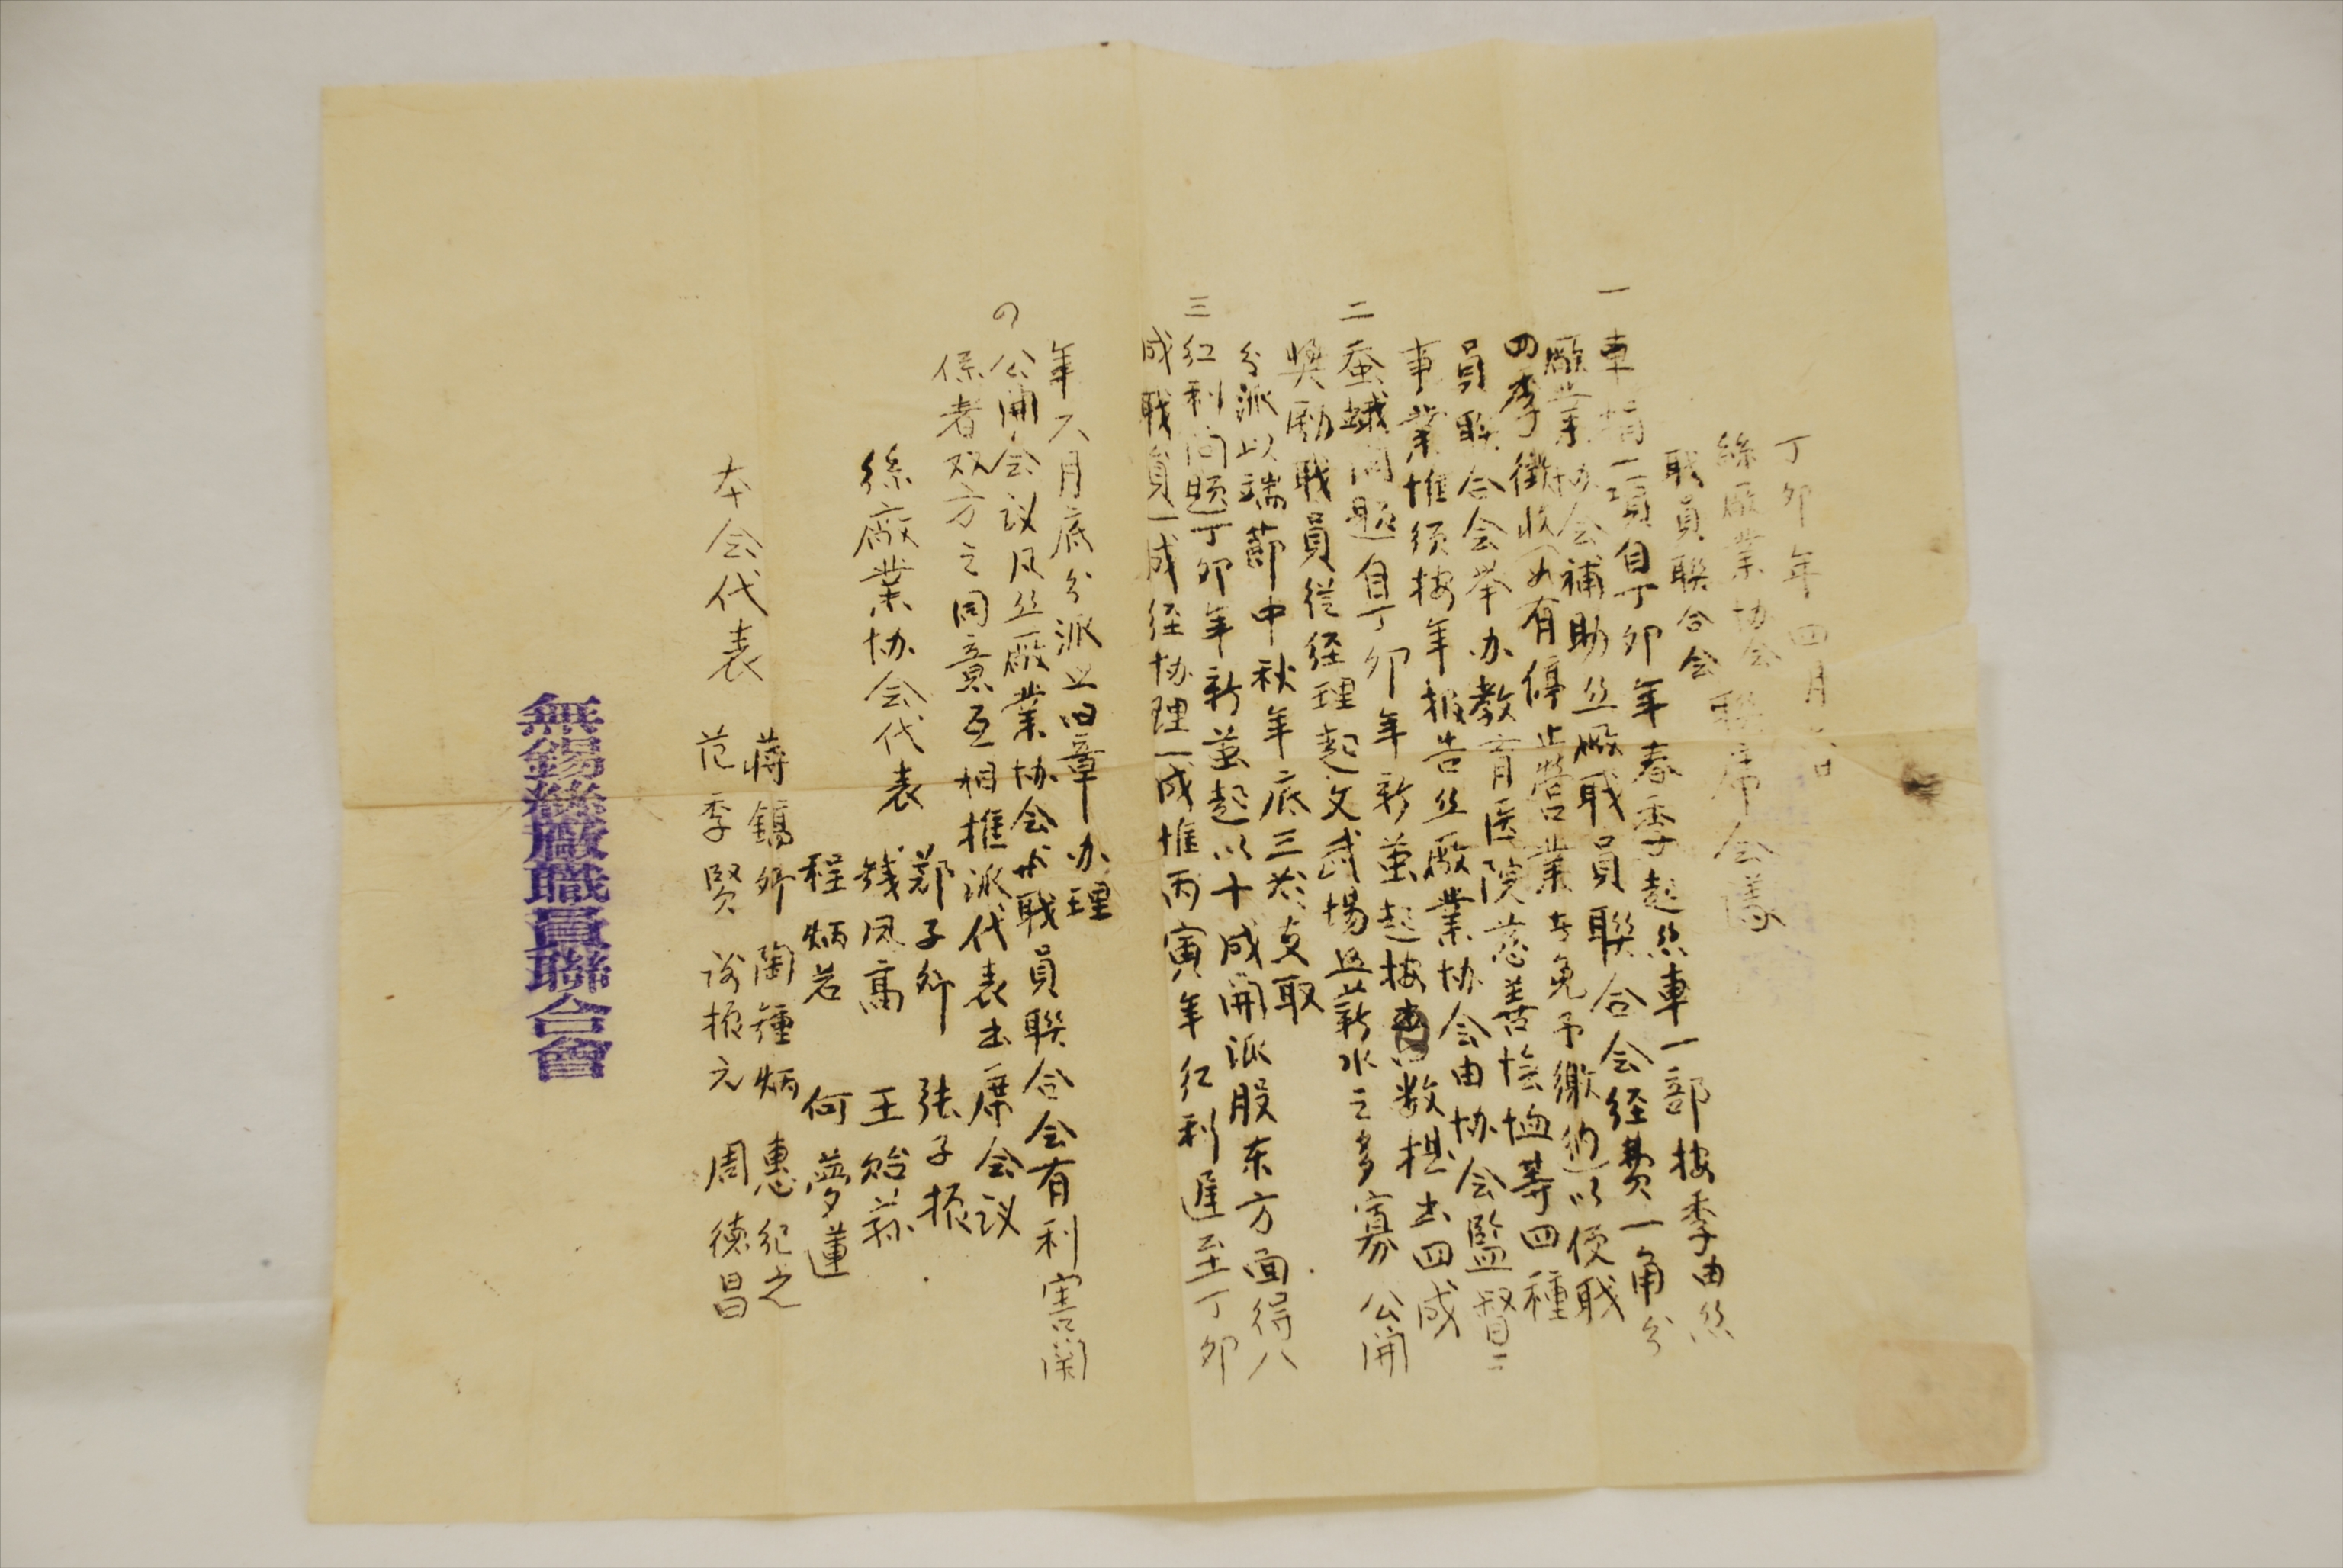 丁卯年四月六日
絲廠業协会
職員聯合会 聯席会議
一 車捐一項自丁卯年春季起丝車一部按季由丝
廠業协会補助丝廠职員聯合会经費一角分
四季徵收如有停止营業者免予繳納以便职
員联合会举办教育医院慈善恤等四種
事業惟须按年报告丝廠業协会由协会監督之
二 蚕蛾问题自丁卯年新茧起按数提出四成
奬励职員從经理起文武場照薪水之多寡公開
分派以端節中秋年底三於支取
三 红利问题丁卯年新茧起以十成開派股东方面得八
成职員一成经协理一成惟丙寅年红利遅至丁卯
年六月底分派照旧章办理
四 公開会议凡丝廠業协会或职員联合会有利害関
係者双方之同意互相推派代表出席会议
絲廠業协会代表 鄭子卿 張子振
錢凤高 王貽蓀
程炳若 何夢蓮
本会代表 蒋鎬卿 陶鍾炳 惠紀之
范季賢 振元 周德昌
無錫絲廠職員聯合會